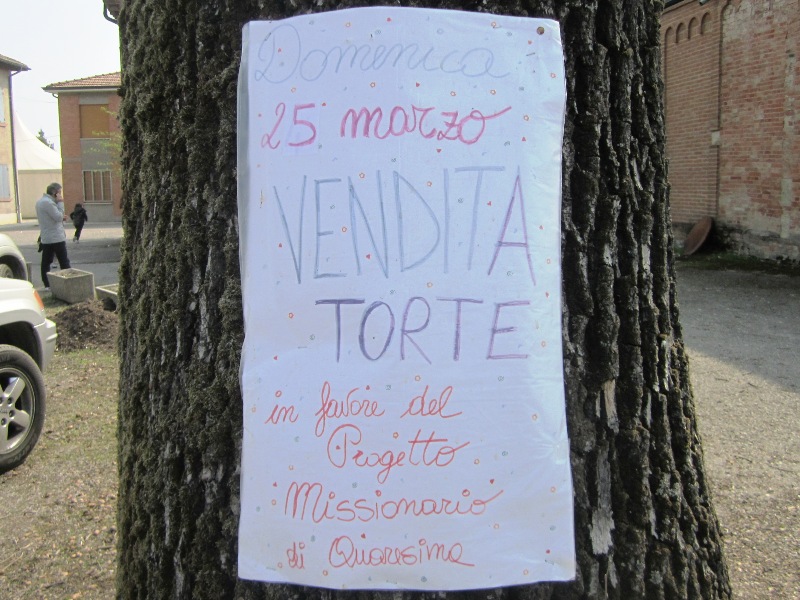 Domenica
25 marzo
VENDITA
TORTE
in favore del
Progetto
Missionario
di Quaresima